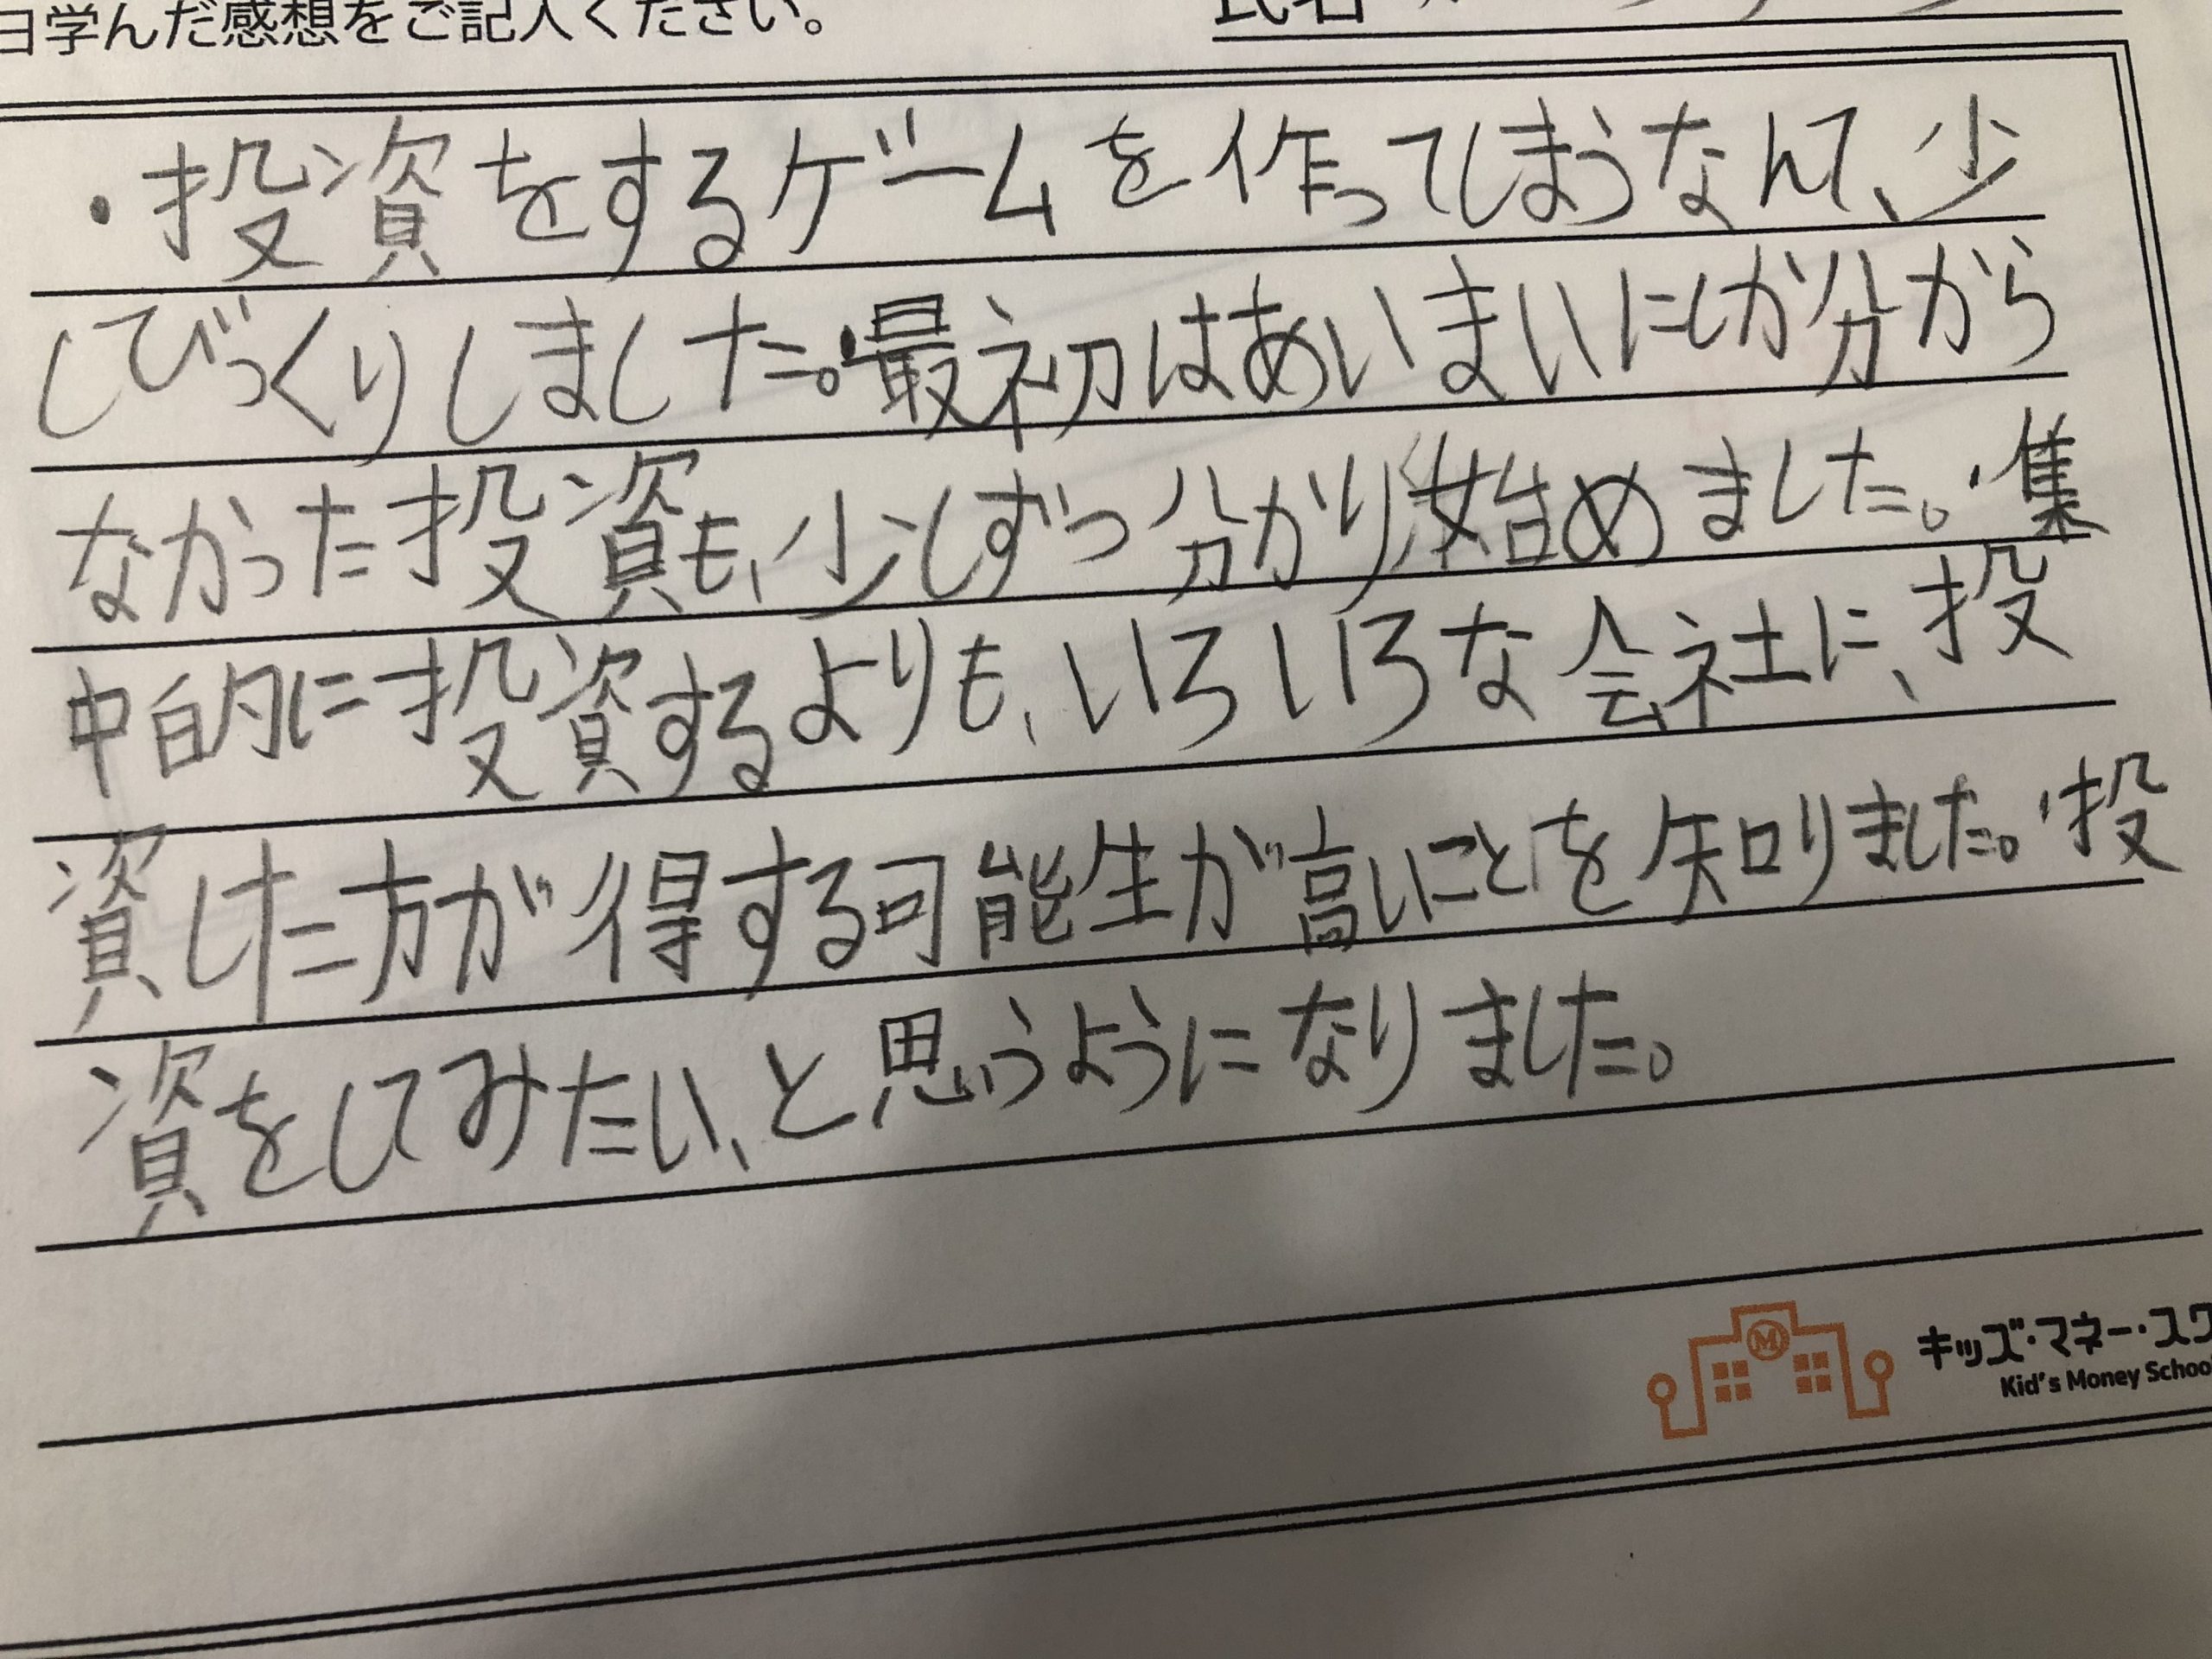 日学んだ感想をご記入ください。
氏名
・投資をするゲームを作ってしまうなんて、少
しびっくりしました。・最初はあいまいにしか分から
なかった投資も、少しずつ分かり始めました。・集
中的に投資するよりも、いろいろな会社に、投
資した方が得する可能生が高いことを知りました。・投
資をしてみたい、と思うようになりました。
M
キッズ・マネー・スク
Kid's Money School